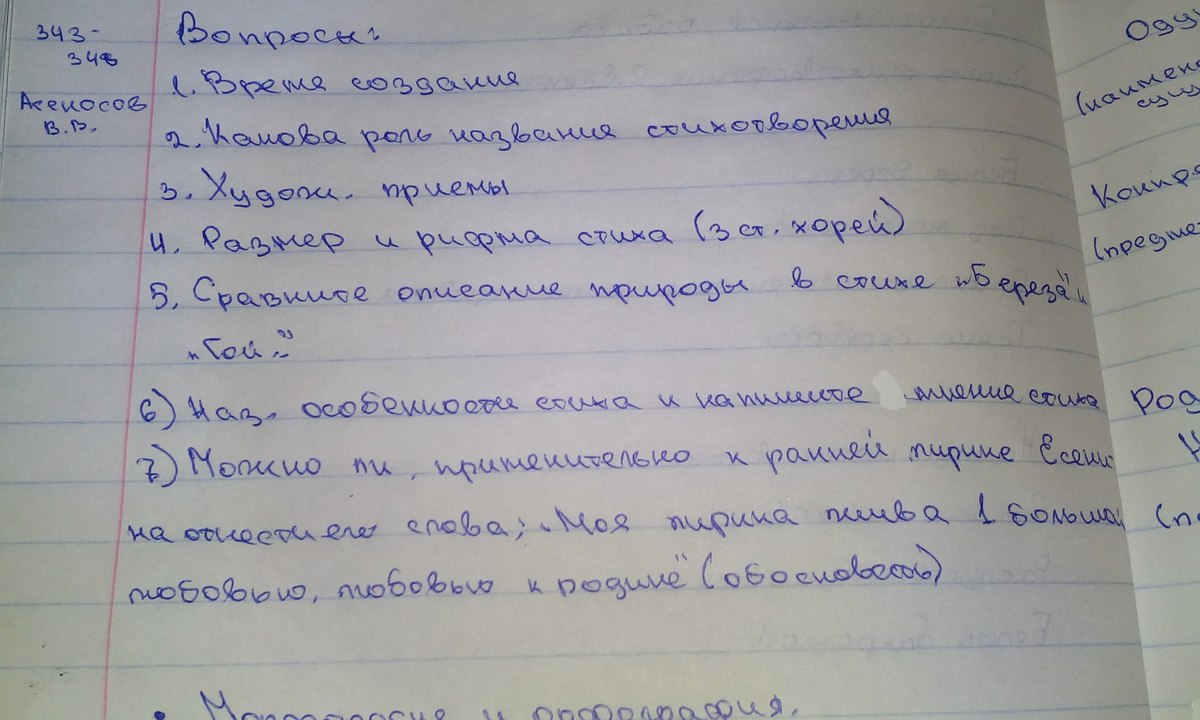 343-
348
Агеносов
В.В.
Вопросы:
1. Время создания
2. Какова роль названия стихотворения
3. Худож. приемы
4. Размер и рифма стиха (3 ст. хорей)
5. Сравните описание природы в стихе „Береза" и
„Гой.."
6) Наз. особенности стиха и напишите мнение стиха
7) Можно ли, применительно к ранней лирике Есени
на отнести его слова; „Моя лирика жива 1 большой
любовью, любовью к родине" (обосновать)
Оду
(наимено
сущ
Конкр
(предме
Род
(п